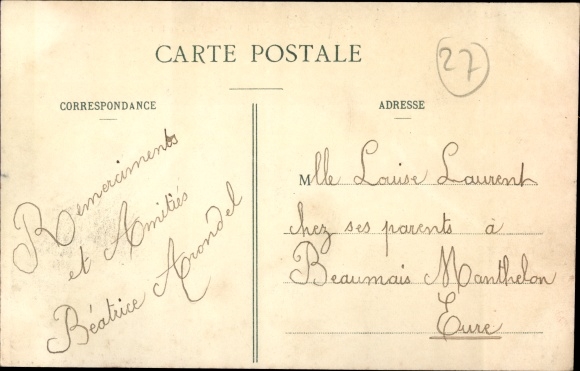 CARTE POSTALE
27
CORRESPONDANCE
ADRESSE
Remerciments
et Amitiés
Béatrice Arondel
Mlle Louise Laurent
chez ses parents à
Beaumais Manthelon
Eure